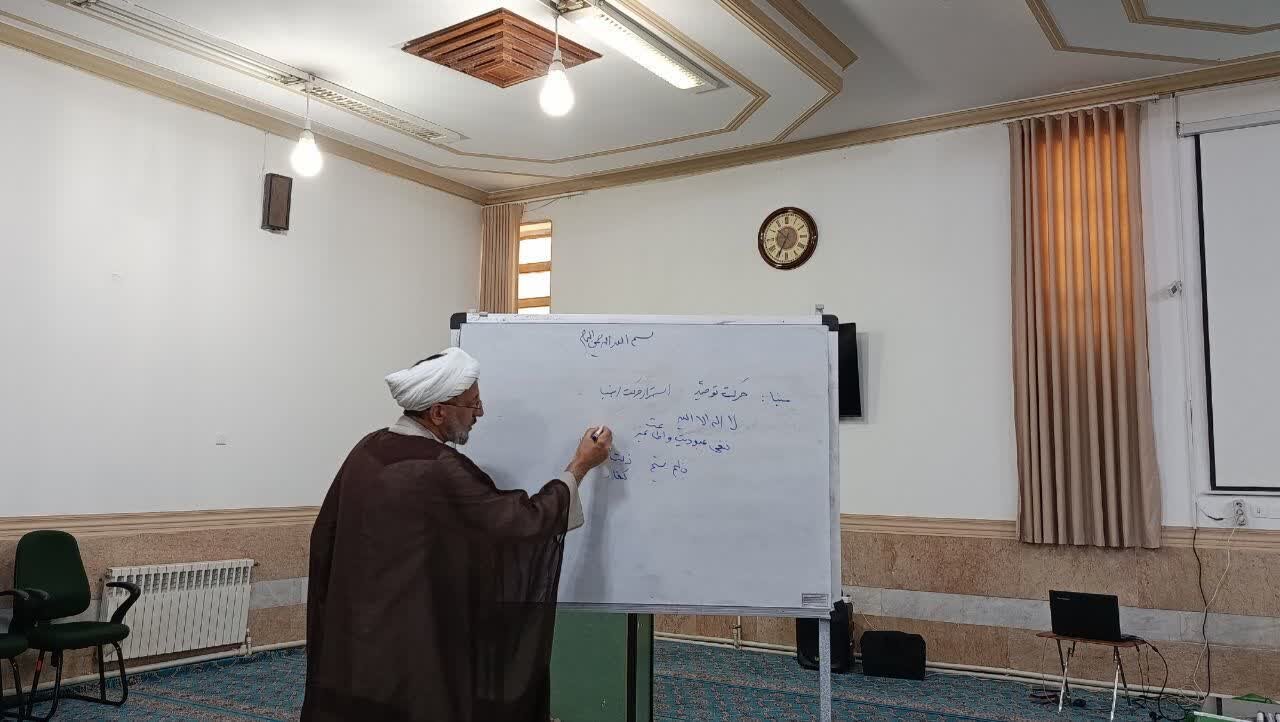 بسم الله الرحمن الرحیم
مبنا: حرکت توحیدی استمرار حرکت انبیا
لا اله الا الله
نفی عبودیت و اطاعت غیر
ظلم ستیز